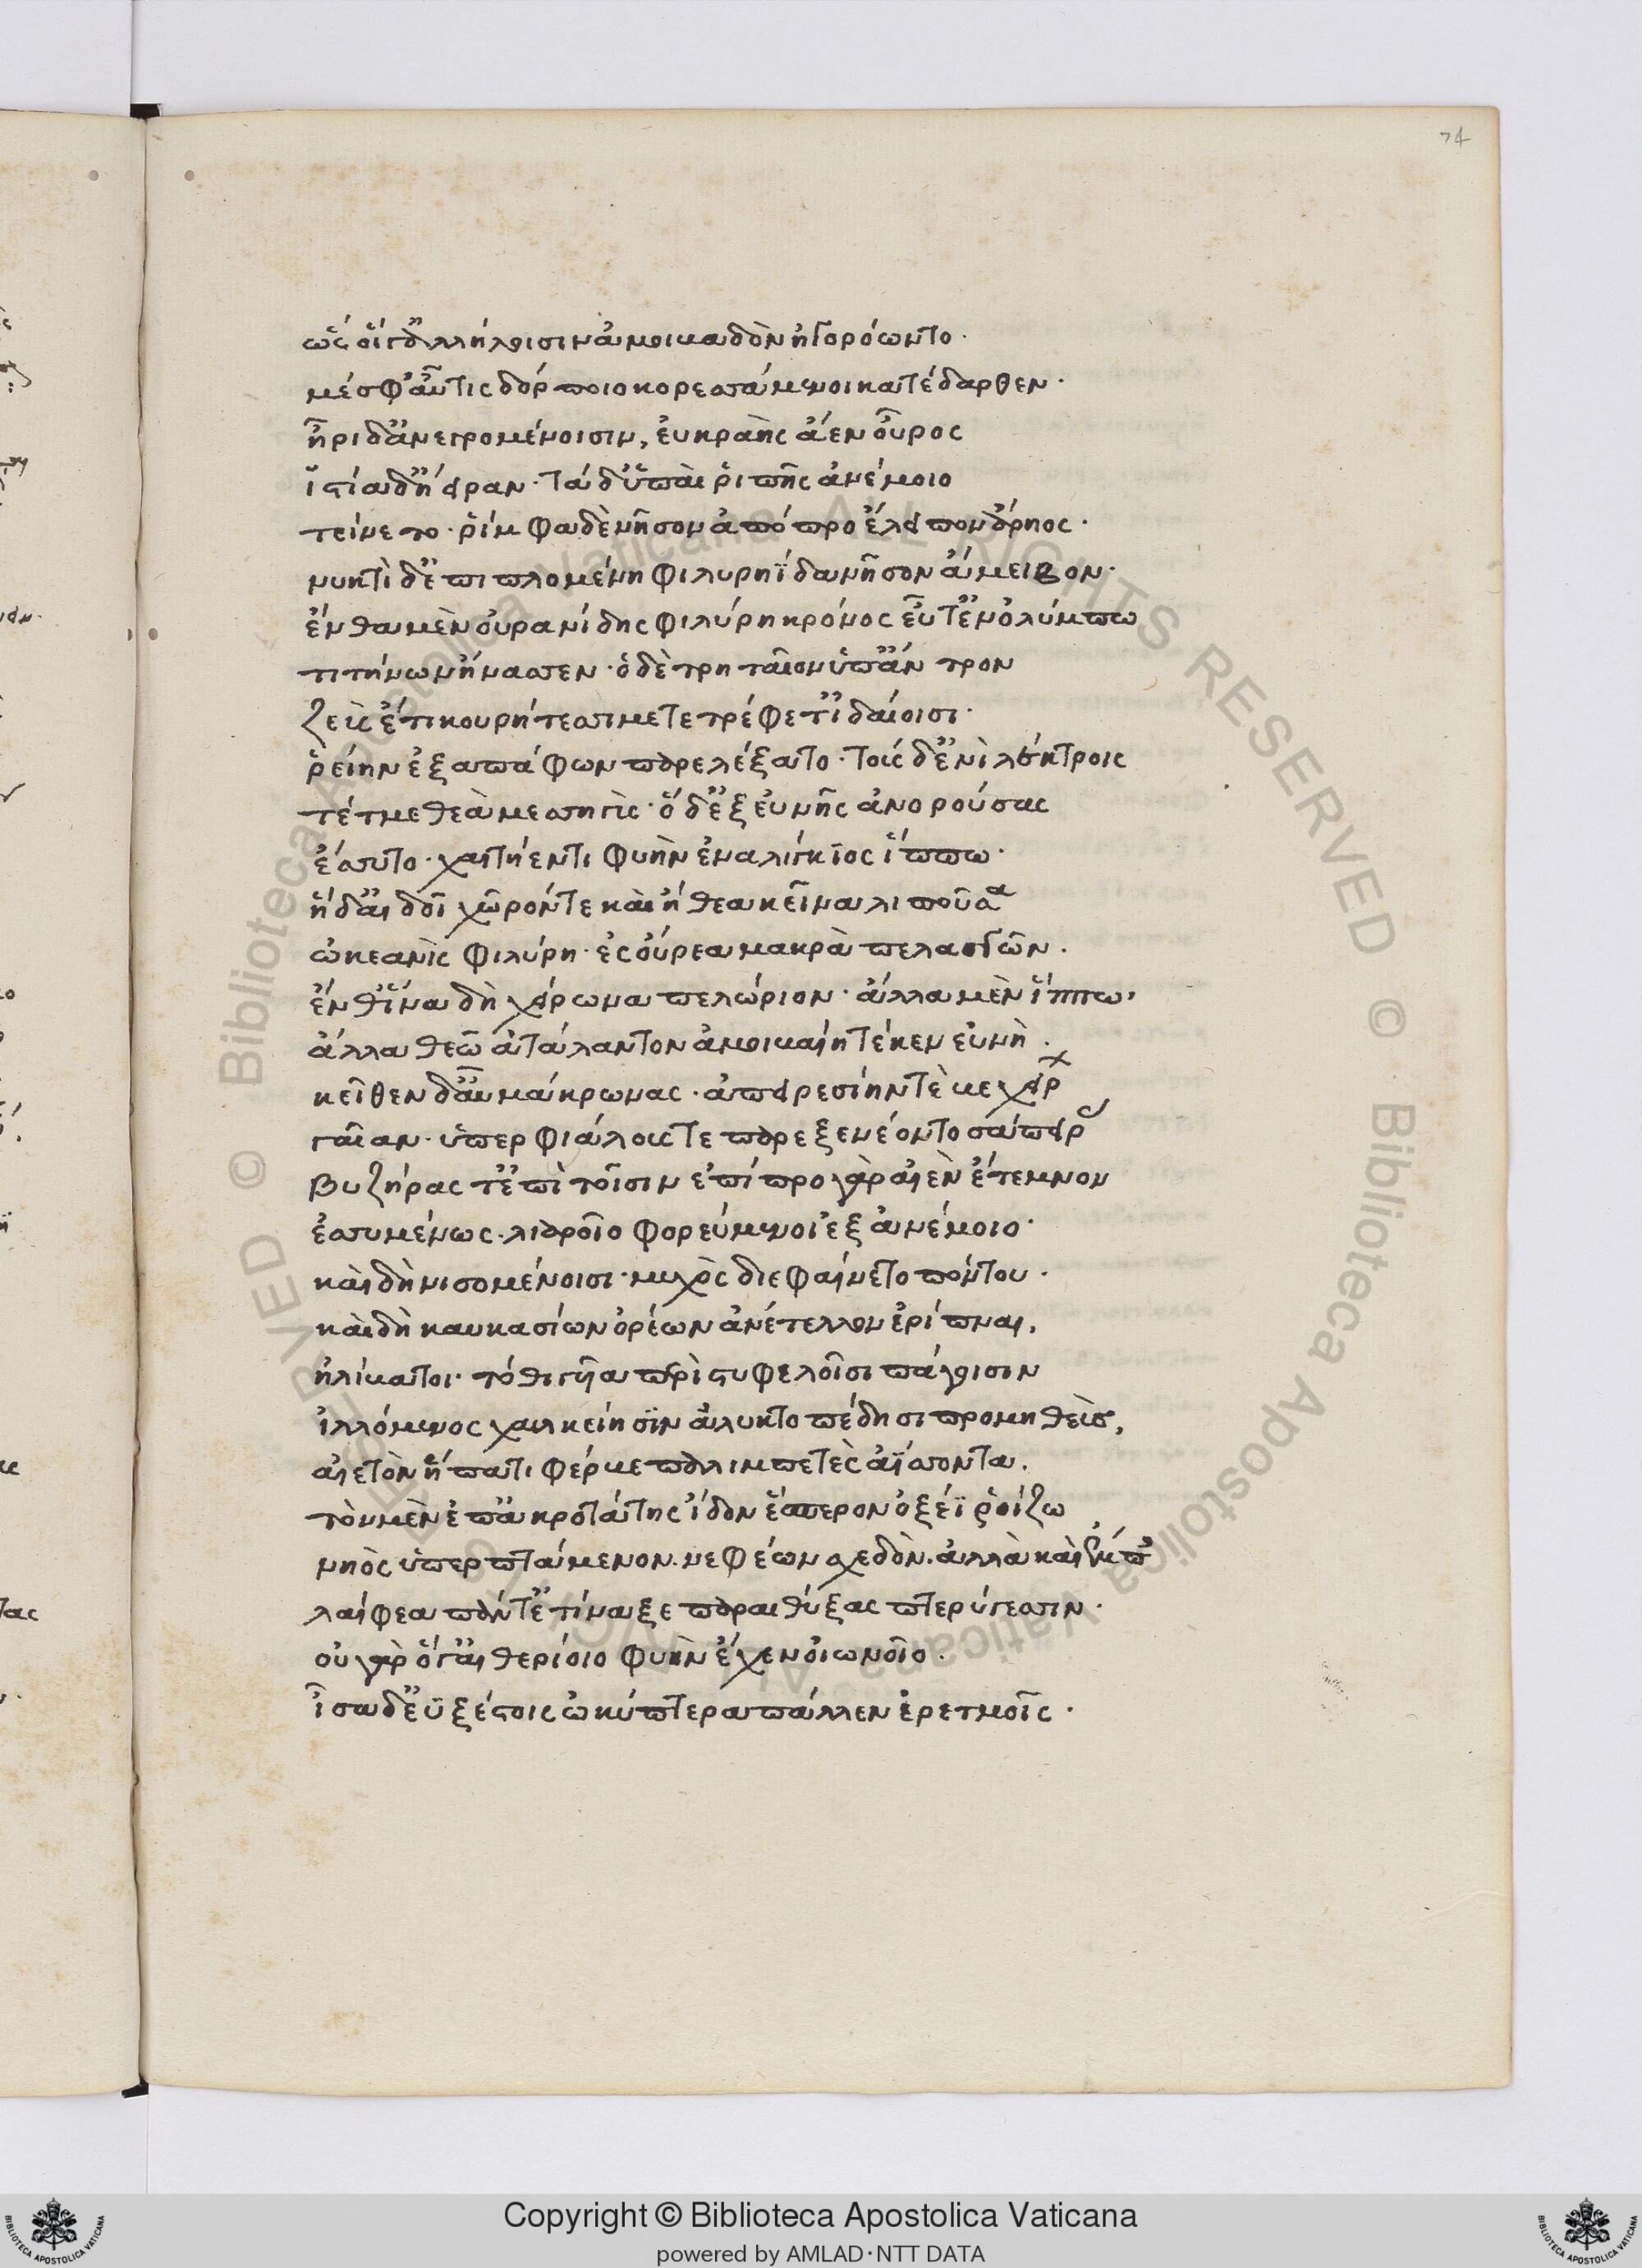 74
ὣς οἵγ' ἀλλήλοισιν ἀμοιβαδὸν ἠγορόωντο.
μέσφ' αὖτις δόρποιο κορεσσάμενοι κατέδαρθεν.
ἦρι δ' ἀνεγρομένοισιν, ἐυκραὴς ἄεν οὖρος
ἱστία δ' ἤειραν· τὰ δ' ὑπαὶ ῥιπῆς ἀνέμοιο
τείνετο· ῥίμφα δὲ νῆσον ἀπόπρο ἔλειπον ἄρηος.
νυκτὶ δ' ἐπιπλομένῃ φιλυρηΐδα νῆσον ἄμειβον.
ἔνθα μὲν οὐρανίδης φιλύρῃ κρόνος εὖτ' ἐν ὀλύμπω
τιτήνων ἤνασσεν· ὁ δὲ κρηταῖον ὑπ' ἄντρον
ζεὺς ἔτι κουρήτεσσι μετετρέφετ' ἰδαίοισι·
ῥείην ἐξαπάφων παρελέξατο· τοὺς δ' ἐνὶ λέκτροις
τέτμε θεὰ μεσηγύς· ὁ δ' ἐξ εὐνῆς ἀνορούσας
ἔσσυτο· χαιτήεντι φυὴν ἐναλίγκιος ἵππω·
ἡ δ' αἰδοῖ χῶρόν τε καὶ ἤθεα κεῖνα λιποῦσα
ὠκεανὶς φιλύρη· ἐς οὔρεα μακρὰ πελασγῶν.
ἔνθ' ἵνα δὴ χείρωνα πελώριον· ἄλλα μὲν ἵππω,
ἄλλα θεῶ ἀτάλαντον ἀμοιβαίη τέκεν εὐνῆ.
κεῖθεν δ' αὖ μάκρωνας· ἀπειρεσίην τε βεχείρ
γαῖαν· ὑπερφιάλους τε παρεξενέοντο σάπειρ
βυζήρας τ' ἐπὶ τοῖσιν ἐπίπρο γὰρ αἰὲν ἔτεμνον
ἐσσυμένως· λιαροῖο φορεύμενοι ἐξ ἀνέμοιο·
καὶ δὴ νισομένοισι· μυχὸς διεφαίνετο πόντου.
καὶ δὴ καυκασίων ὀρέων ἀνέτελλον ἐρίπναι,
ἠλίβατοι· τόθι γυῖα περὶ στυφελοῖσι πάγοισιν
ἰλλόμενος χαλκείησιν ἀλυκτοπέδησι προμηθεὺς,
αἰετὸν ἥπατι φέρβε παλιμπετὲς ἀΐσσοντα.
τὸν μὲν ἐπ' ἀκροτάτης ἴδον ἕσπερον ὀξέϊ ῥοίζω
νηὸς ὑπερπτάμενον νεφέων σχεδὸν. ἀλλὰ καὶ ἔμπ
λαίφεα πάντ' ἐτίναξε παραιθύξας πτερύγεσσιν.
οὐ γὰρ ὅγ' αἰθερίοιο φυὴν ἔχεν οἰωνοῖο.
ἶσα δ' ἐϋξέστοις ὠκύπτερα πάλλεν ἐρετμοῖς.
Copyright © Biblioteca Apostolica Vaticana
powered by AMLAD·NTT DATA